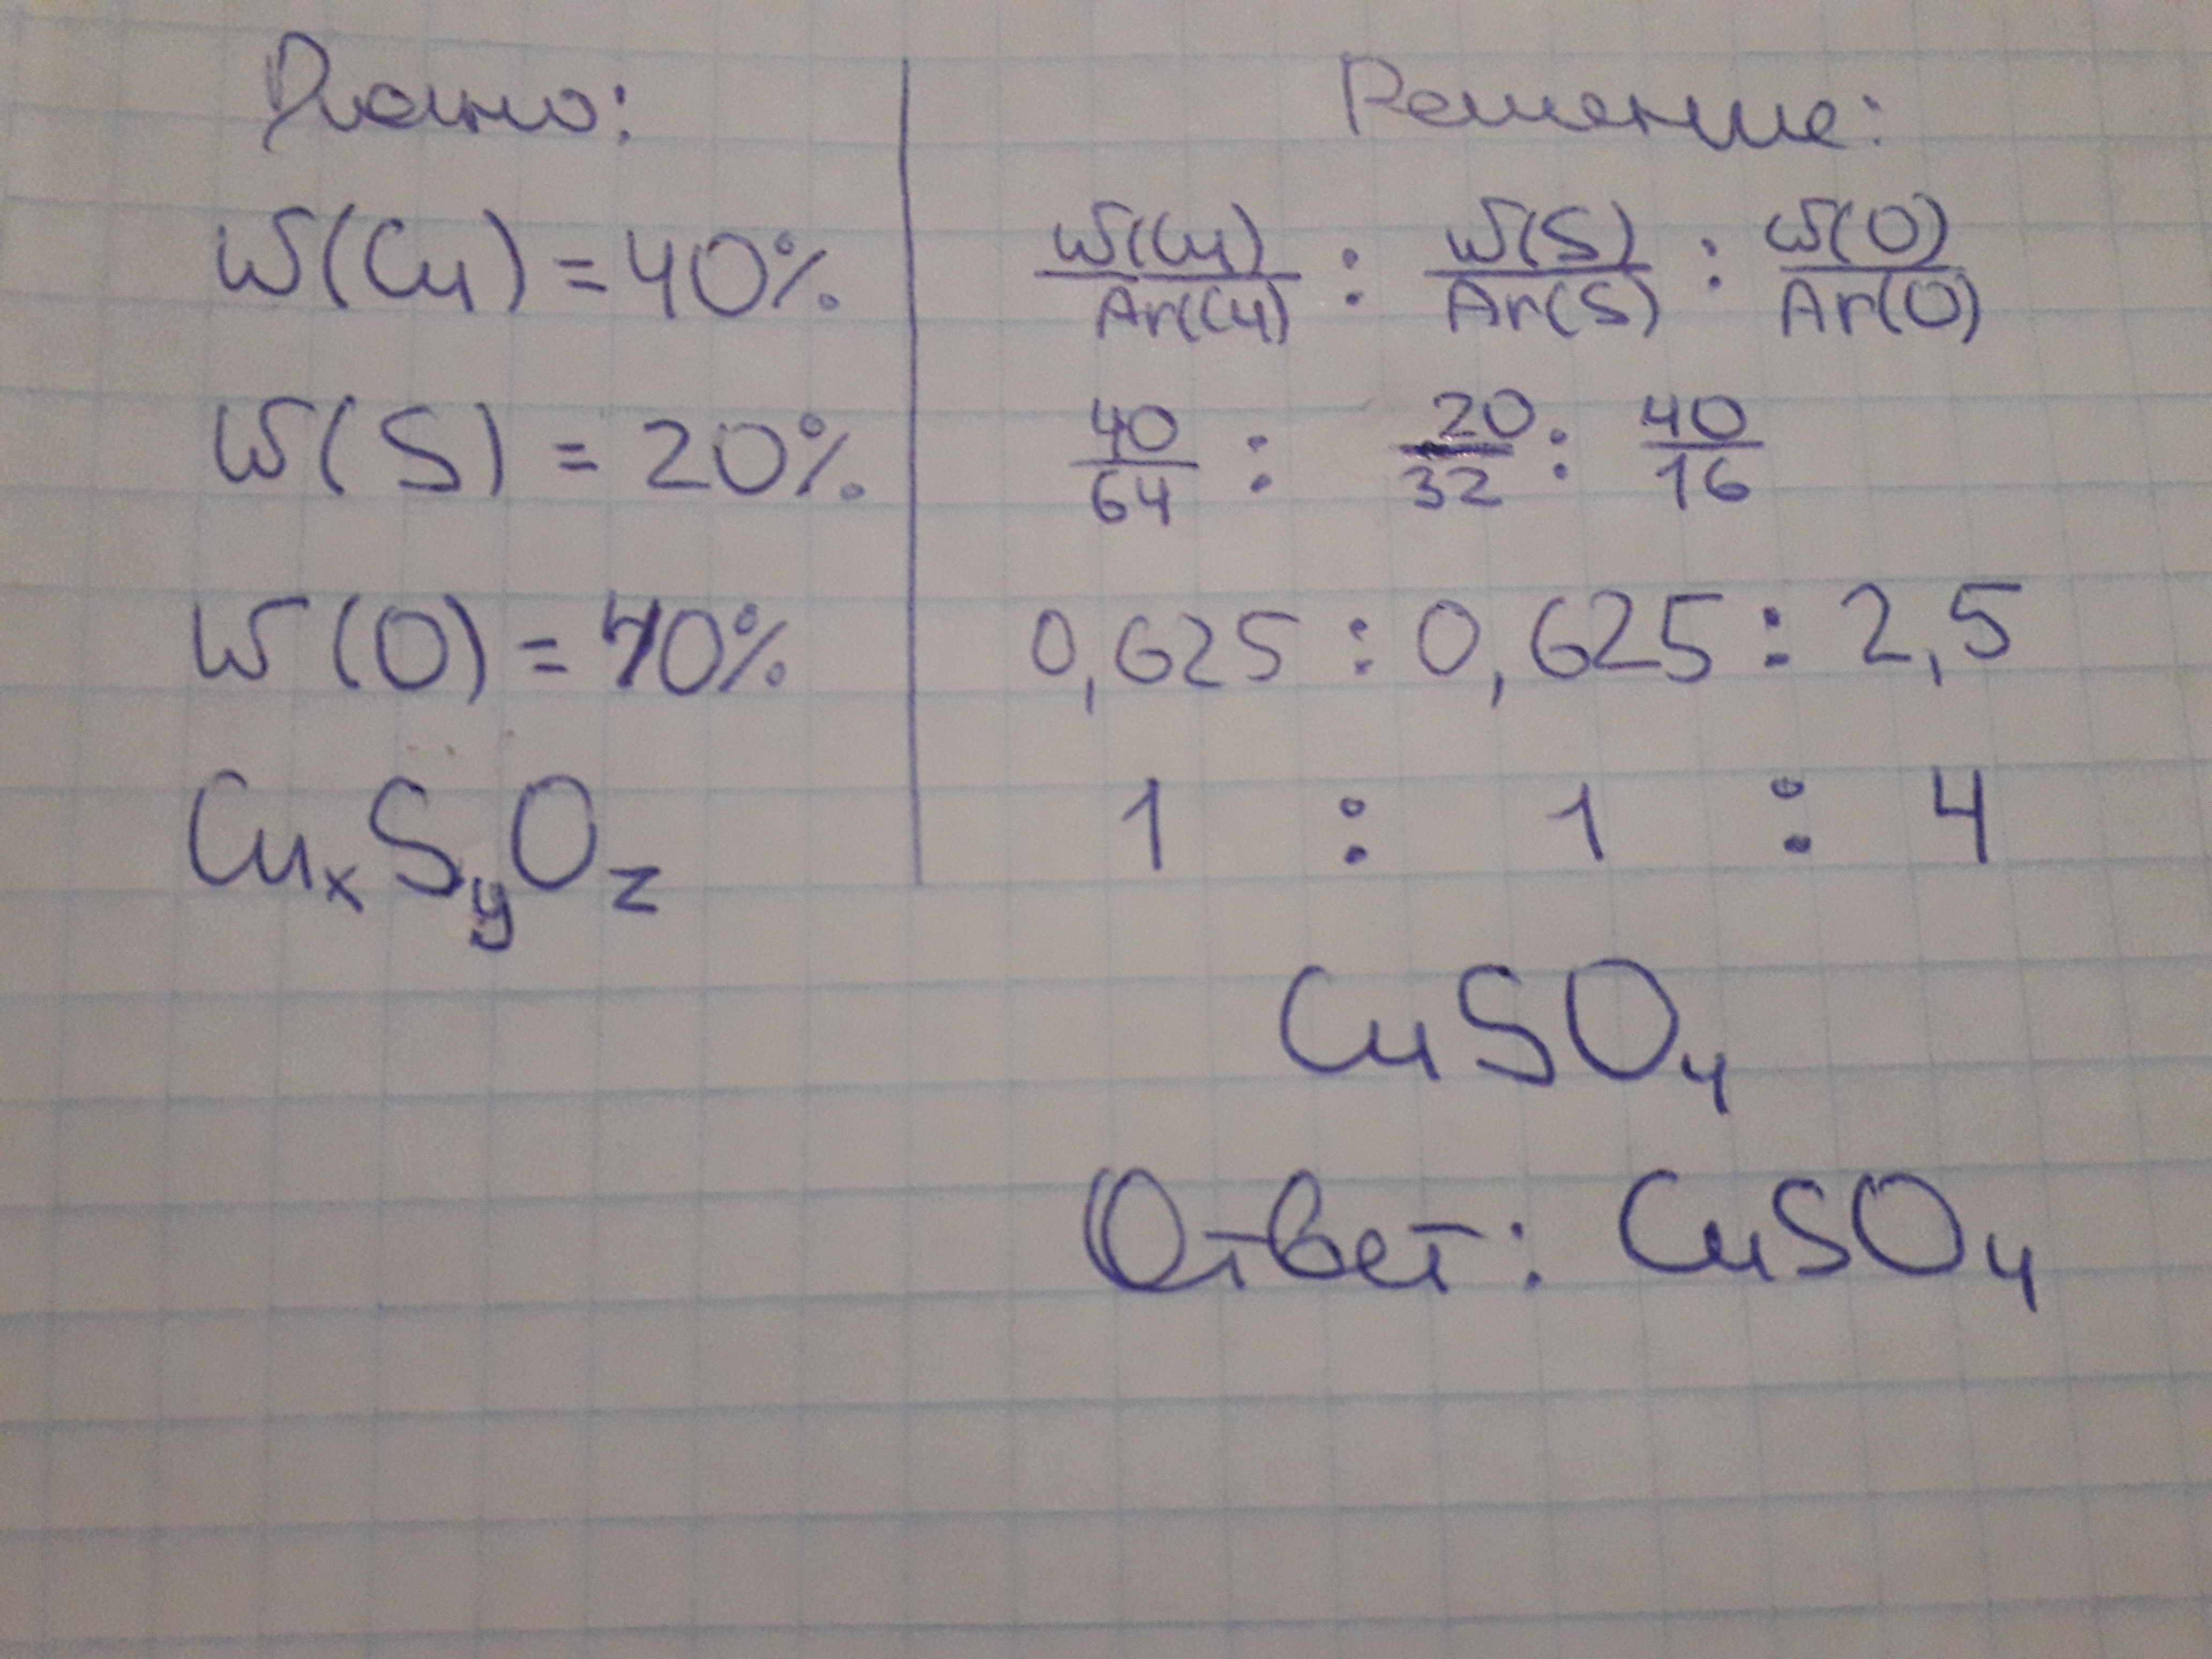 Дано:
W(Cu) = 40%
W(S) = 20%
W(O) = 40%
CuxSyOz
Решение:
W(Cu)/Ar(Cu) : W(S)/Ar(S) : W(O)/Ar(O)
40/64 : 20/32 : 40/16
0,625 : 0,625 : 2,5
1 : 1 : 4
CuSO4
Ответ: CuSO4